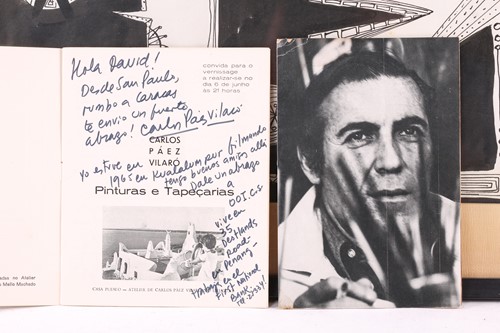 Hola David!
Desde San Paulo,
rumbo a Caracas
te envio un fuerte
abrazo! Carlos Páez Vilaró
convida para o
vernissage
a realizar-se no
dia 6 de junho
às 21 horas
CARLOS
PÁEZ
VILARÓ
Yo estive en
1965 en Kualalum pur filmando
tengo buenos amigos allá
Dale un abrazo
a
OOI. C.S
Pinturas e Tapeçarias
vive en
35
Road
en Penang
trabaja en el
First National
Bank
CASA PUEBLO — ATELIER DE CARLOS PÁEZ
adas no Atelier
Mella Machado